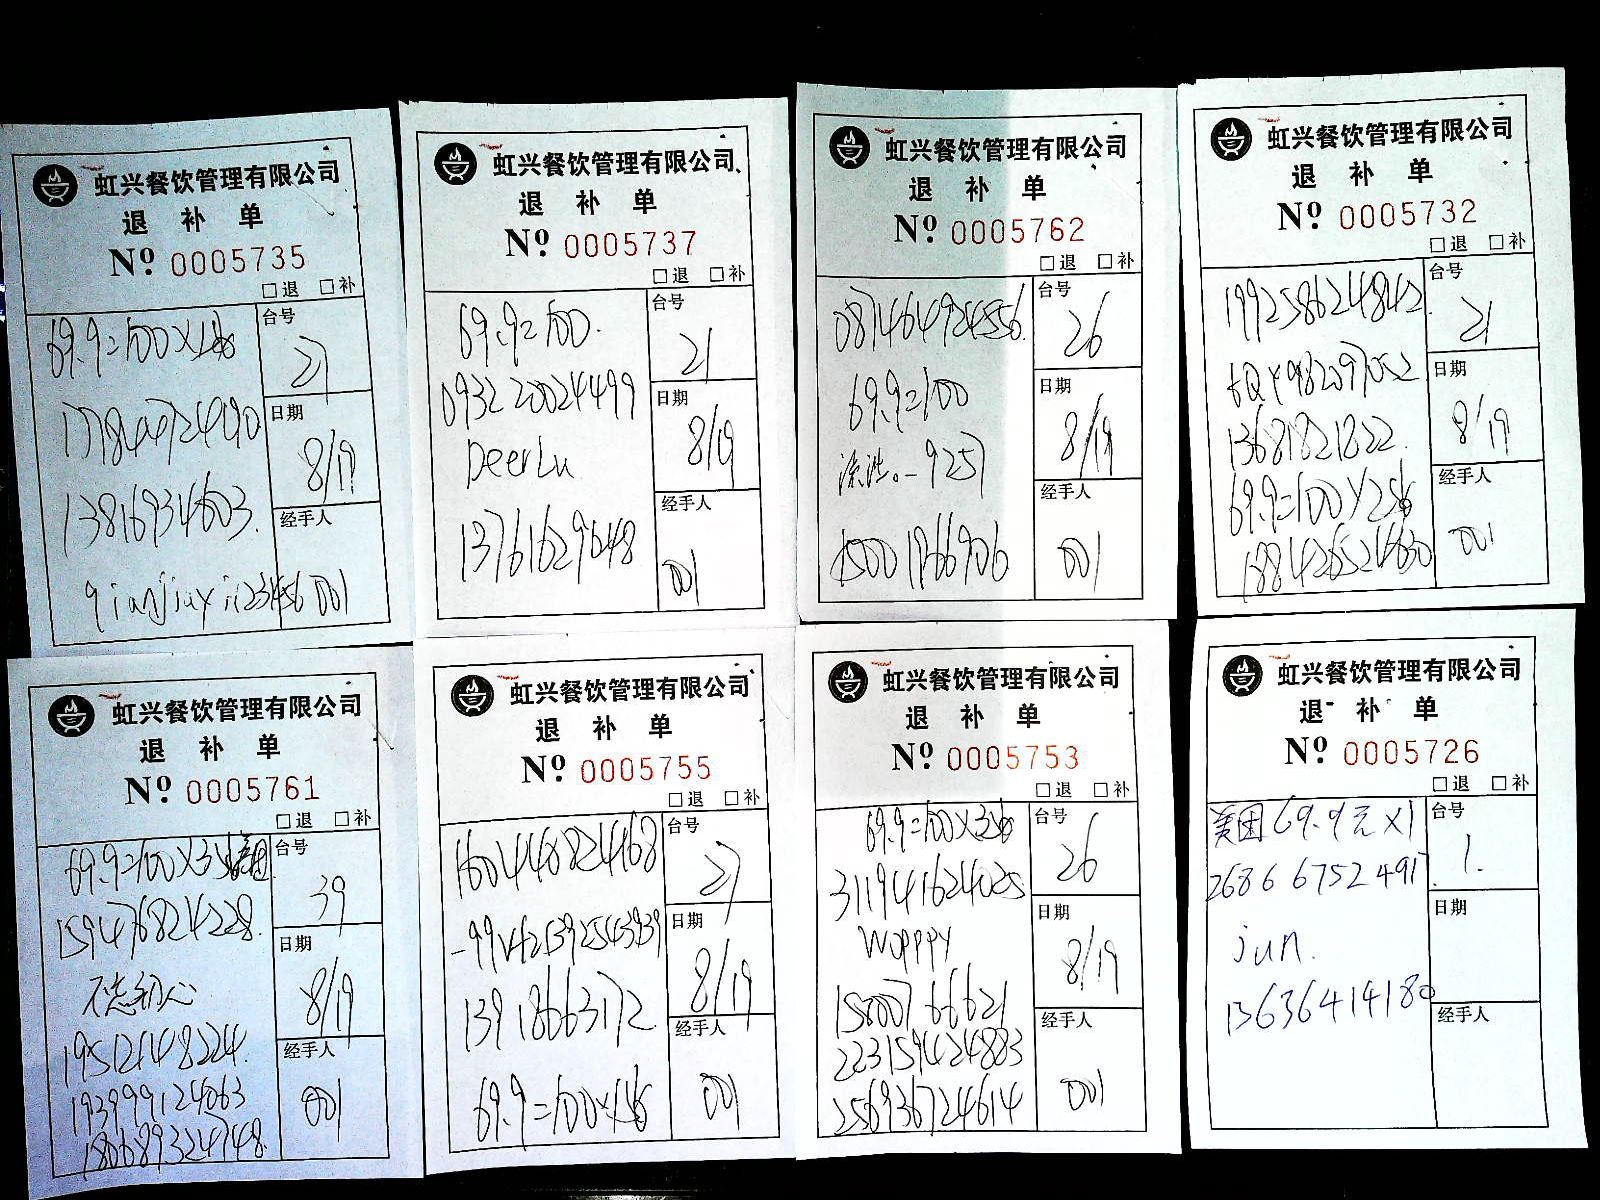 虹兴餐饮管理有限公司
退 补 单
Nº 0005735
□退 □补
69.9=100X1份
台号
27
日期
8/19
13816934603.
经手人
qianjiaxii123456
001
虹兴餐饮管理有限公司
退 补 单
Nº 0005737
□退 □补
69.9=100.
台号
21
0932 20024499
日期
8/19
DeerLu
13761629648
经手人
001
虹兴餐饮管理有限公司
退 补 单
Nº 0005762
□退 □补
0871464924556.
台号
26
69.9=100
日期
8/19
经手人
15001966906
001
虹兴餐饮管理有限公司
退 补 单
Nº 0005732
□退 □补
1992586424842
台号
21
日期
8/19
13681821822.
69.9=100X2份
经手人
001
虹兴餐饮管理有限公司
退 补 单
Nº 0005761
□退 □补
69.9=100X3份美团
台号
39
159476824228.
日期
8/19
不忘初心
19512148224.
经手人
1939999124063
1806893224748.
001
虹兴餐饮管理有限公司
退 补 单
Nº 0005755
□退 □补
1600444824168
台号
27
日期
8/19
13918663172
经手人
69.9=100X1份
001
虹兴餐饮管理有限公司
退 补 单
Nº 0005753
□退 □补
69.9=100X3份
台号
26
3119441624025
Wopppy
日期
8/19
15800766621
2231594424883
经手人
256936724614
001
虹兴餐饮管理有限公司
退 补 单
Nº 0005726
□退 □补
美团69.9元X1
台号
1.
2686 6752 491
日期
jun.
13636414180
经手人